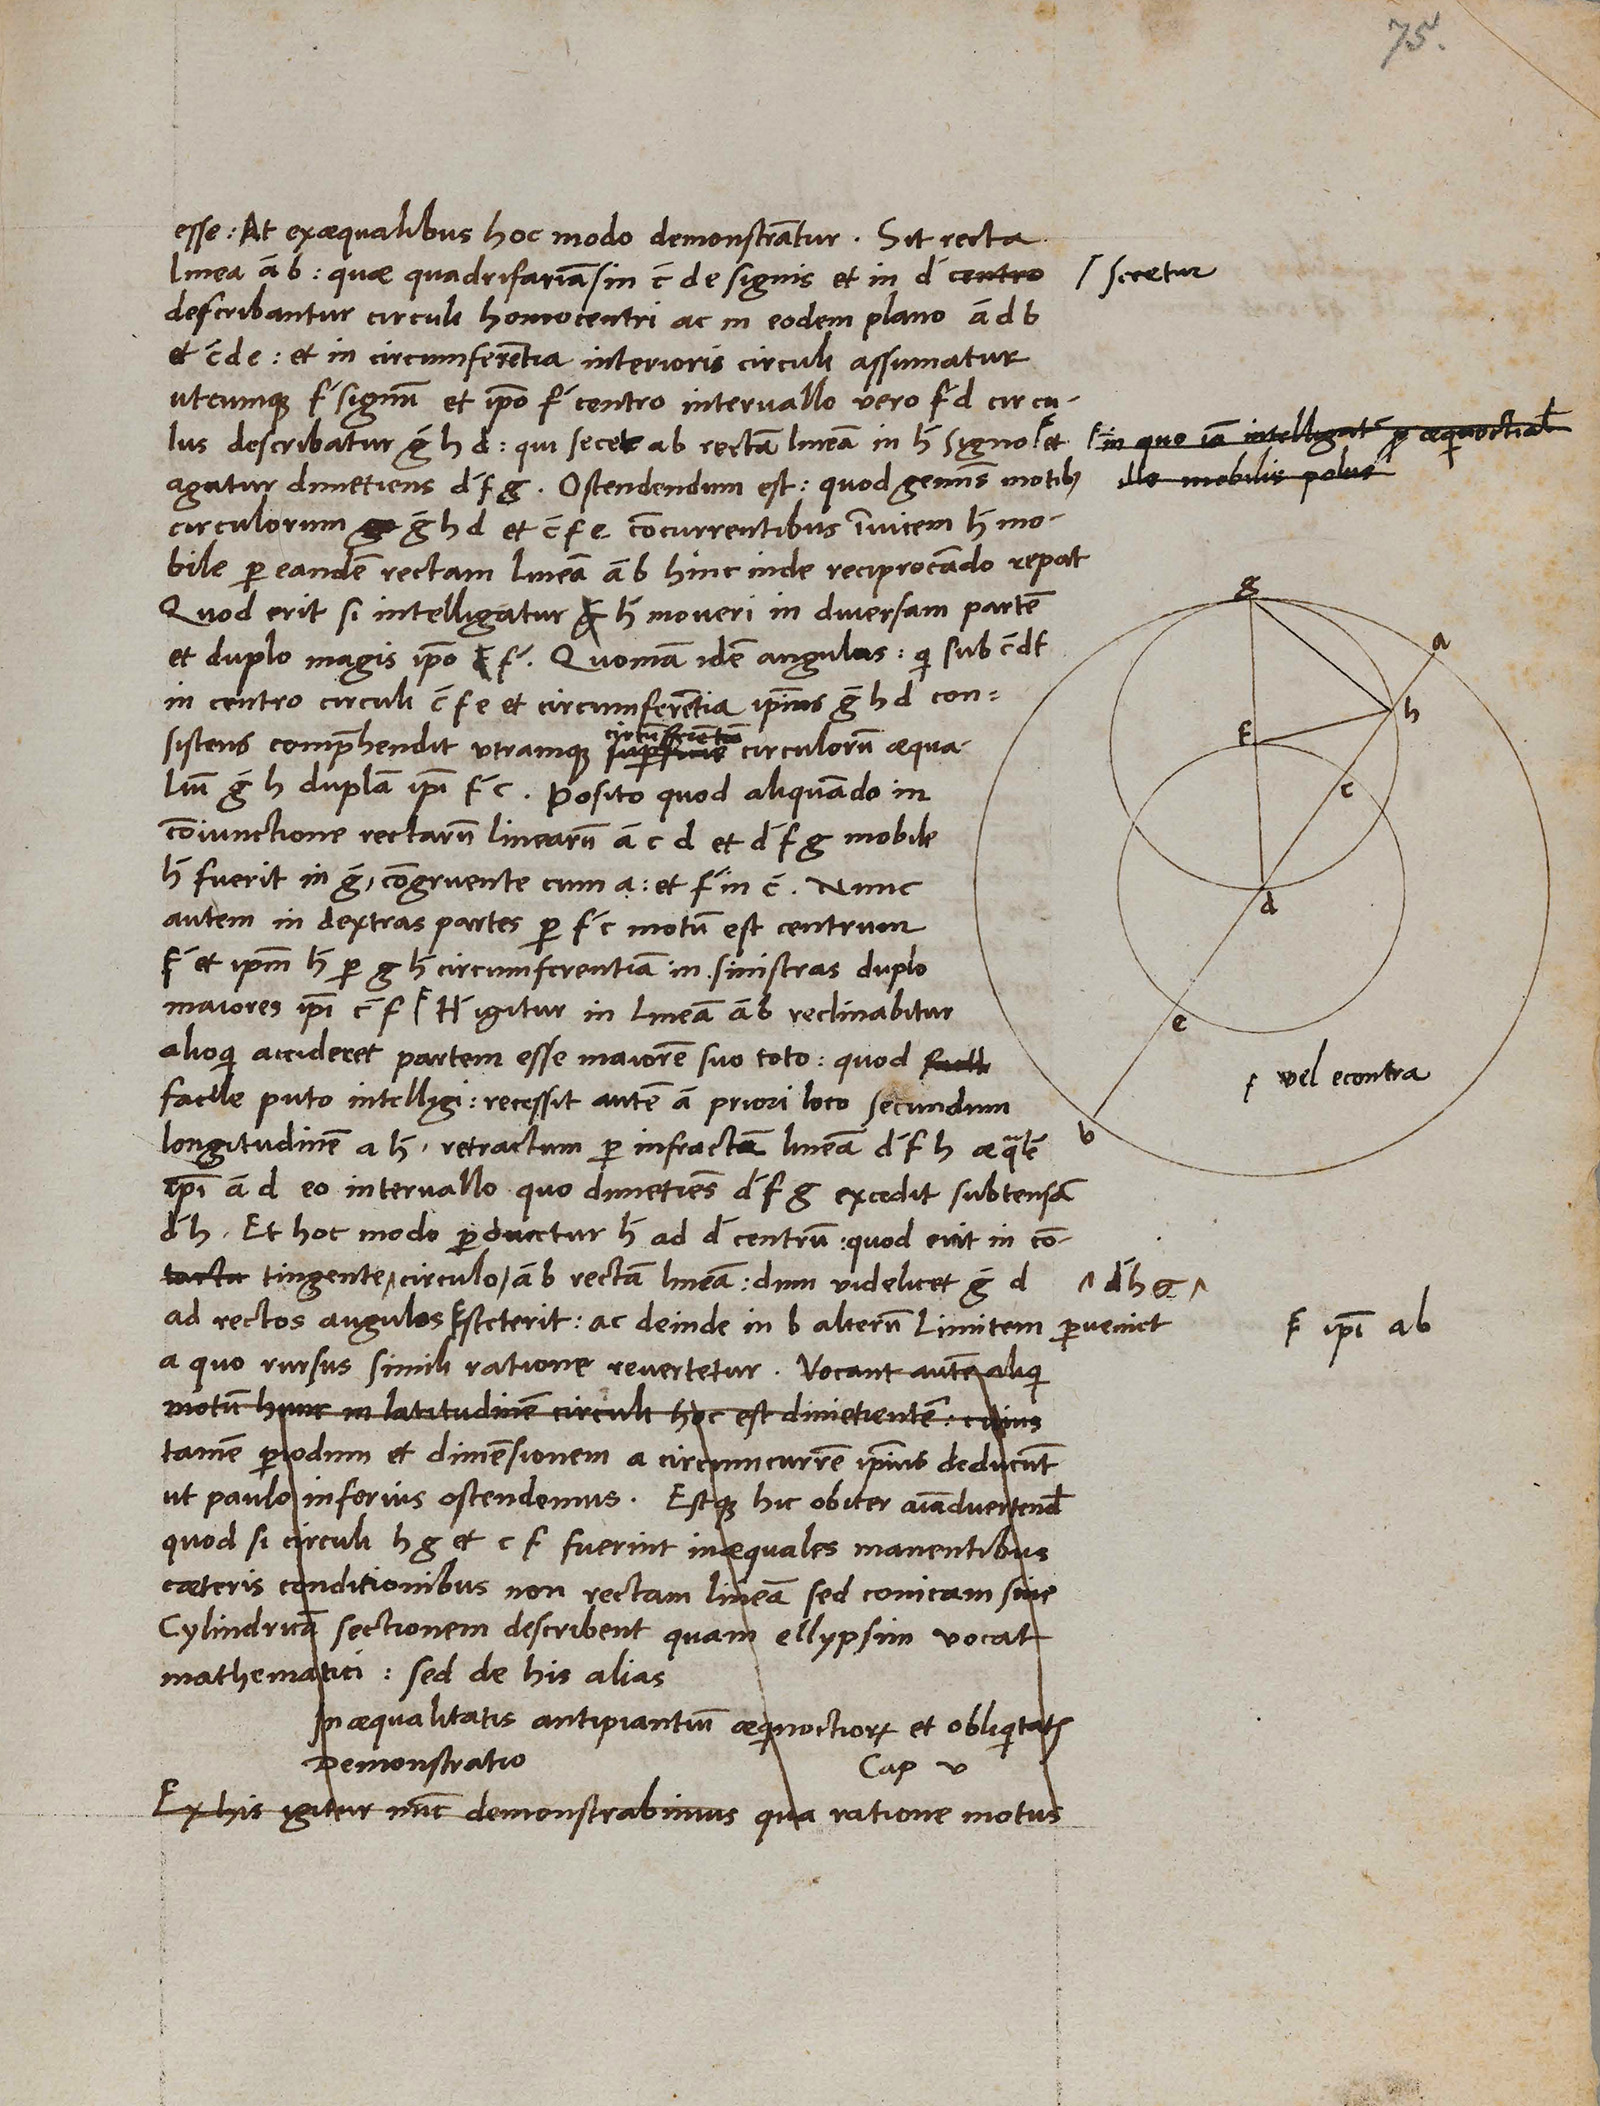 75.
esse: At exæqualibus hoc modo demonstrãtur. Sit recta
linea āb: quæ quadrifariã/in c̄ d e signis et in d̄ centro / secetur
describantur circuli homocentri ac in eodem plano ā d b
et c̄ d e: et in circumferẽtia interioris circuli assumatur
utcumqȝ f̄ signũ et ip̃o f̄ centro interuallo vero f̄ d circu-
lus describatur ḡ h d: qui secet ab rectã lineã in h̄ signo ⌈et ⌈in quo iã intelligat᷑ p̃ æquoctial
agatur dimetiens d̄ f g. Ostendendum est: quod geminis motibȝ ille mobilis polus
circulorum ḡ h d et c̄ f e cõcurrentibus ĩuicem h̄ mo-
bile p eandẽ rectam lineã ā b hinc inde reciprocãdo repat
Quod erit si intelligãtur h̄ moueri in diuersam partẽ
et duplo magis ip̃o f̄. Quoniã idẽ angulus: qi sub c̄ d f
in centro circuli c̄ f e et circumferẽtia ip̃ius ḡ h d con=
sistens comp̃hendit vtramqȝ circũferẽtiã circulorũ æqua-
liũ ḡ h duplã ip̃i f̄ c. Posito quod aliquãdo in
cõiunctione rectarũ linearũ ā c d et d̄ f g mobile
h̄ fuerit in ḡ, cõgruente cum a: et f̄ in c̄. Nunc
autem in dextras partes p f̄ c motũ est centrum
f̄ et ip̃m h̄ p g h̄ circumferentiam in sinistras duplo
maiores ip̃i c̄ f ⌈ H̄ igitur in lineã āb reclinabitur
alioqi accideret partem esse maiorẽ suo toto: quod facile
facile puto intelligi: recessit autẽ ā priori loco secundum
longitudinẽ a h̄, retractum p infractã lineã d̄ f h æqualẽ
ip̃i ā d eo interuallo quo dimetiẽs d̄ f g excedit subtensã
d̄ h. Et hoc modo p ducetur h̄ ad d̄ centrũ: quod erit in cõ-
tacta tingente/circulo/āb rectã lineã: dum videlicet ḡ d ^ d̄ h g ^
ad rectos angulos ⌈steterit: ac deinde in b alterũ limitem pueniet ⌈ ip̃i ab
a quo rursus simili ratione reuertetur. Vocant autẽ aliqi
motũ hunc in latitudinẽ circuli hoc est dimetientẽ: cuius
tamẽ piodum et dimẽsionem a circumcurrẽ ip̃ius deducũt
ut paulo inferius ostendemus. Estqȝ hic obiter aĩaduertend
quod si circuli h g et c f fuerint inæquales manentibus
cæteris conditionibus non rectam lineã sed conicam siue
Cylindricã sectionem describent quam ellypsim vocãt
mathematici: sed de his alias
Inæqualitatis antipiantiũ æqinoctiorꝝ et obliqitatis
Demonstratio Cap v
Ex his igitur nũc demonstrabimus qua ratione motus
g
a
h
f
c
d
e
b
⌈ vel econtra